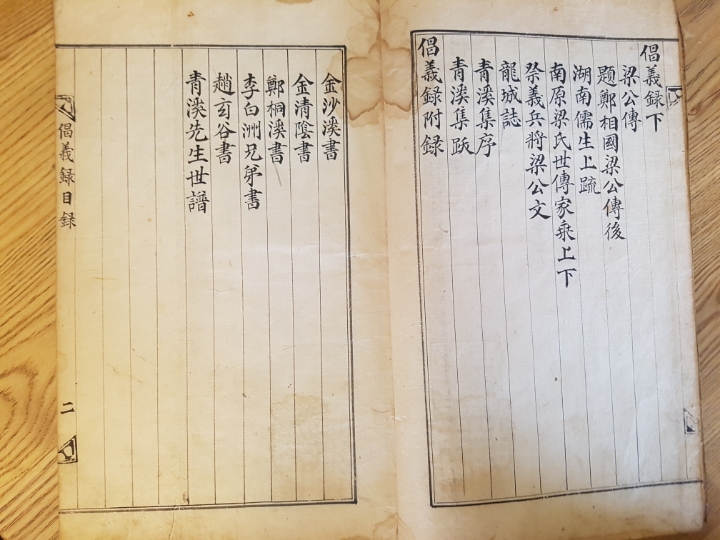 倡義録下
梁公傳
題鄭相國梁公傳後
湖南儒生上疏
南原梁氏世傳家乘上下
祭義兵將梁公文
龍城誌
青溪集序
青溪集跋
倡義録附録
金沙溪書
金清陰書
鄭桐溪書
李白洲兄弟書
趙玄谷書
青溪先生世譜
倡義録目録
二